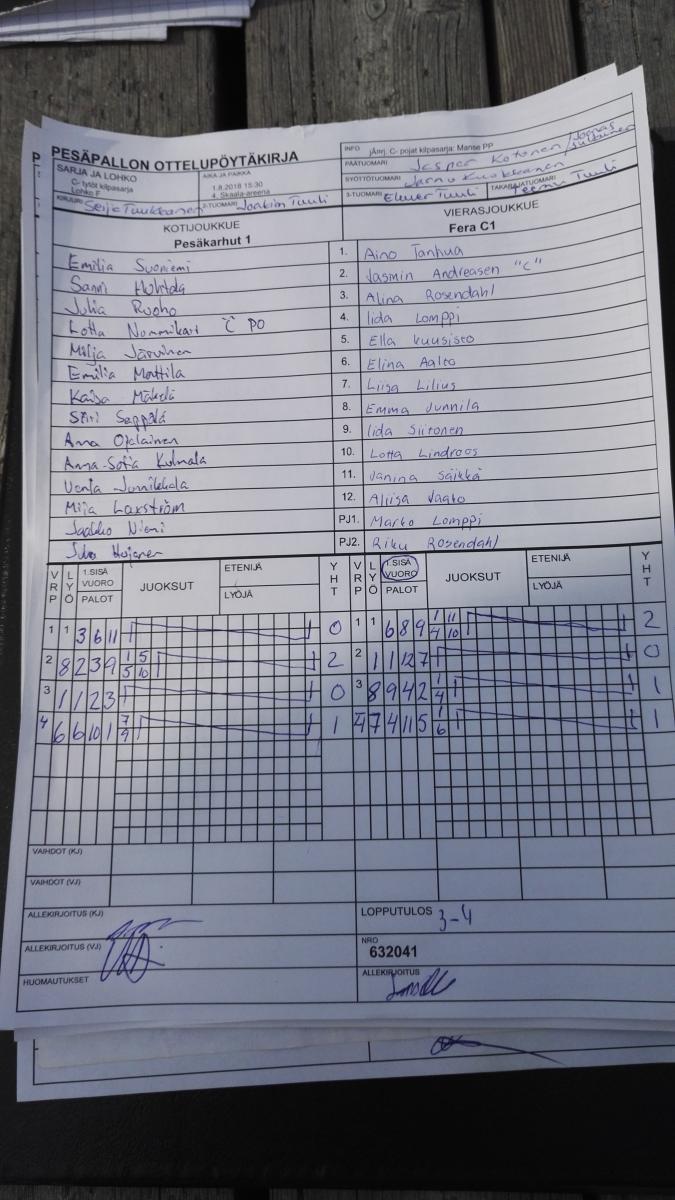 PESÄPALLON OTTELUPÖYTÄKIRJA
INFO jÄnrj. C- pojat kilpasarja: Manse PP
SARJA JA LOHKO
C- tytöt kilpasarja
Lohko F
AIKA JA PAIKKA
1.8.2018 15:30
4. Skaala-areena
PÄÄTUOMARI Jesper Kotonen /Joonas
SYÖTTÖTUOMARI Jarno
KIRJURI Seija Tuukkanen 2-TUOMARI Joakim Tuuli
3-TUOMARI Elmer Tuuli TAKARAJATUOMARI Teemu Tuuli
KOTIJOUKKUE
Pesäkarhut 1
VIERASJOUKKUE
Fera C1
Emilia Suoniemi 1. Aino Tanhua
Sanni Huhtala 2. Jasmin Andreasen "C"
Julia Ruoho 3. Alina Rosendahl
Lotta Nummikari "C" PO 4. Iida Lomppi
Milja Järvinen 5. Ella Kuusisto
Emilia Mattila 6. Elina Aalto
Kaisa Mäkelä 7. Liisa Lilius
Siiri Seppälä 8. Emma Junnila
Anna Ojalainen 9. Iida Siitonen
Anna-Sofia Kulmala 10. Lotta Lindroos
Venla Junnikkala 11. Janina Säikkä
Milja Laxström 12. Aliisa Jaako
Jaakko Niemi PJ1. Marko Lomppi
Juho Hojanen PJ2. Riku Rosendahl
VRP LYÖ 1.SISÄ VUORO PALOT JUOKSUT ETENIJÄ LYÖJÄ YHT VRP LYÖ 1.SISÄ VUORO PALOT JUOKSUT ETENIJÄ LYÖJÄ YHT
1 1 3 6 11 0 1 1 6 8 9 1/4 11/10 2
2 8 2 3 9 1/5 5/10 2 2 1 1 12 7 0
3 1 1 2 3 0 3 8 9 4 2 1/4 1
4 6 6 10 1 7/9 1 4 7 4 11 5 1/6 1
VAIHDOT (KJ)
VAIHDOT (VJ)
ALLEKIRJOITUS (KJ) LOPPUTULOS 3-4
ALLEKIRJOITUS (VJ) NRO
632041
HUOMAUTUKSET ALLEKIRJOITUS